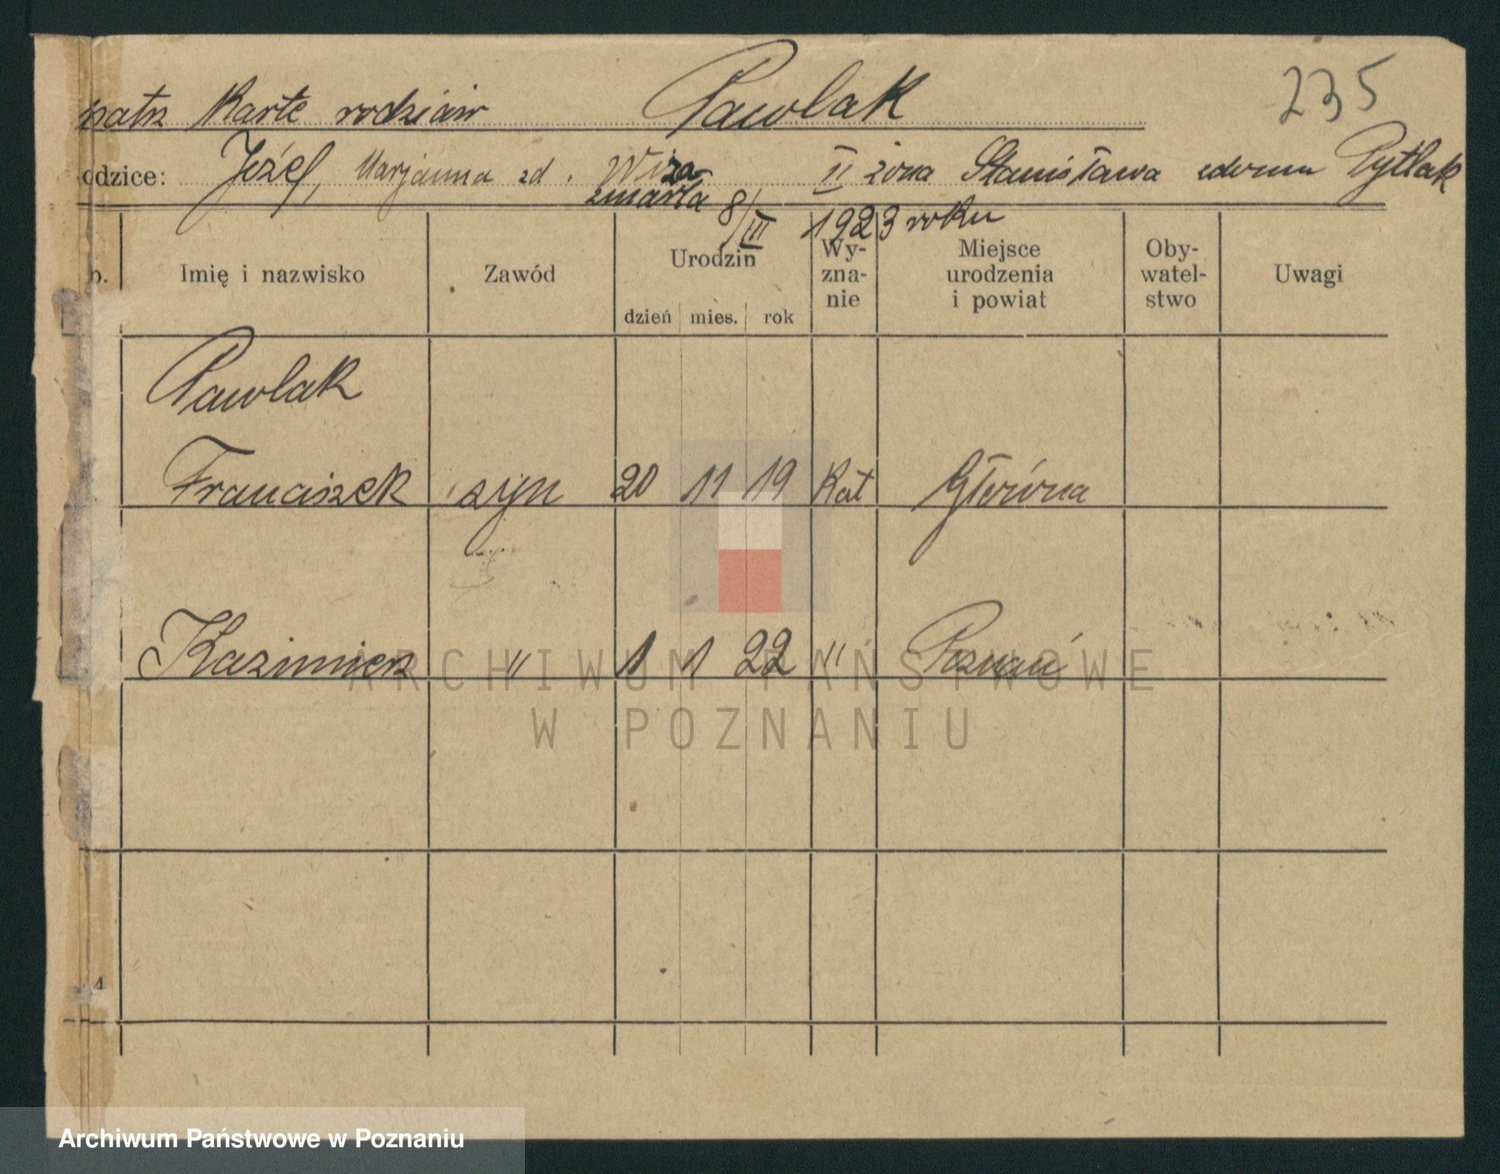 patrz Karte rodziców Pawlak 235
odzice: Józef, Marjanna zd. Wiza II żona Stanisława z domu Pytlak
zmarła 8/III 1923 roku
b. Imię i nazwisko Zawód Urodzin Wy-zna-nie Miejsce urodzenia i powiat Oby-watel-stwo Uwagi
dzień mies. rok
Pawlak
Franciszek syn 20 11 19 Kat Główna
Kazimierz " 1 1 22 " Poznań
ARCHIWUM PAŃSTWOWE
W POZNANIU
4
Archiwum Państwowe w Poznaniu